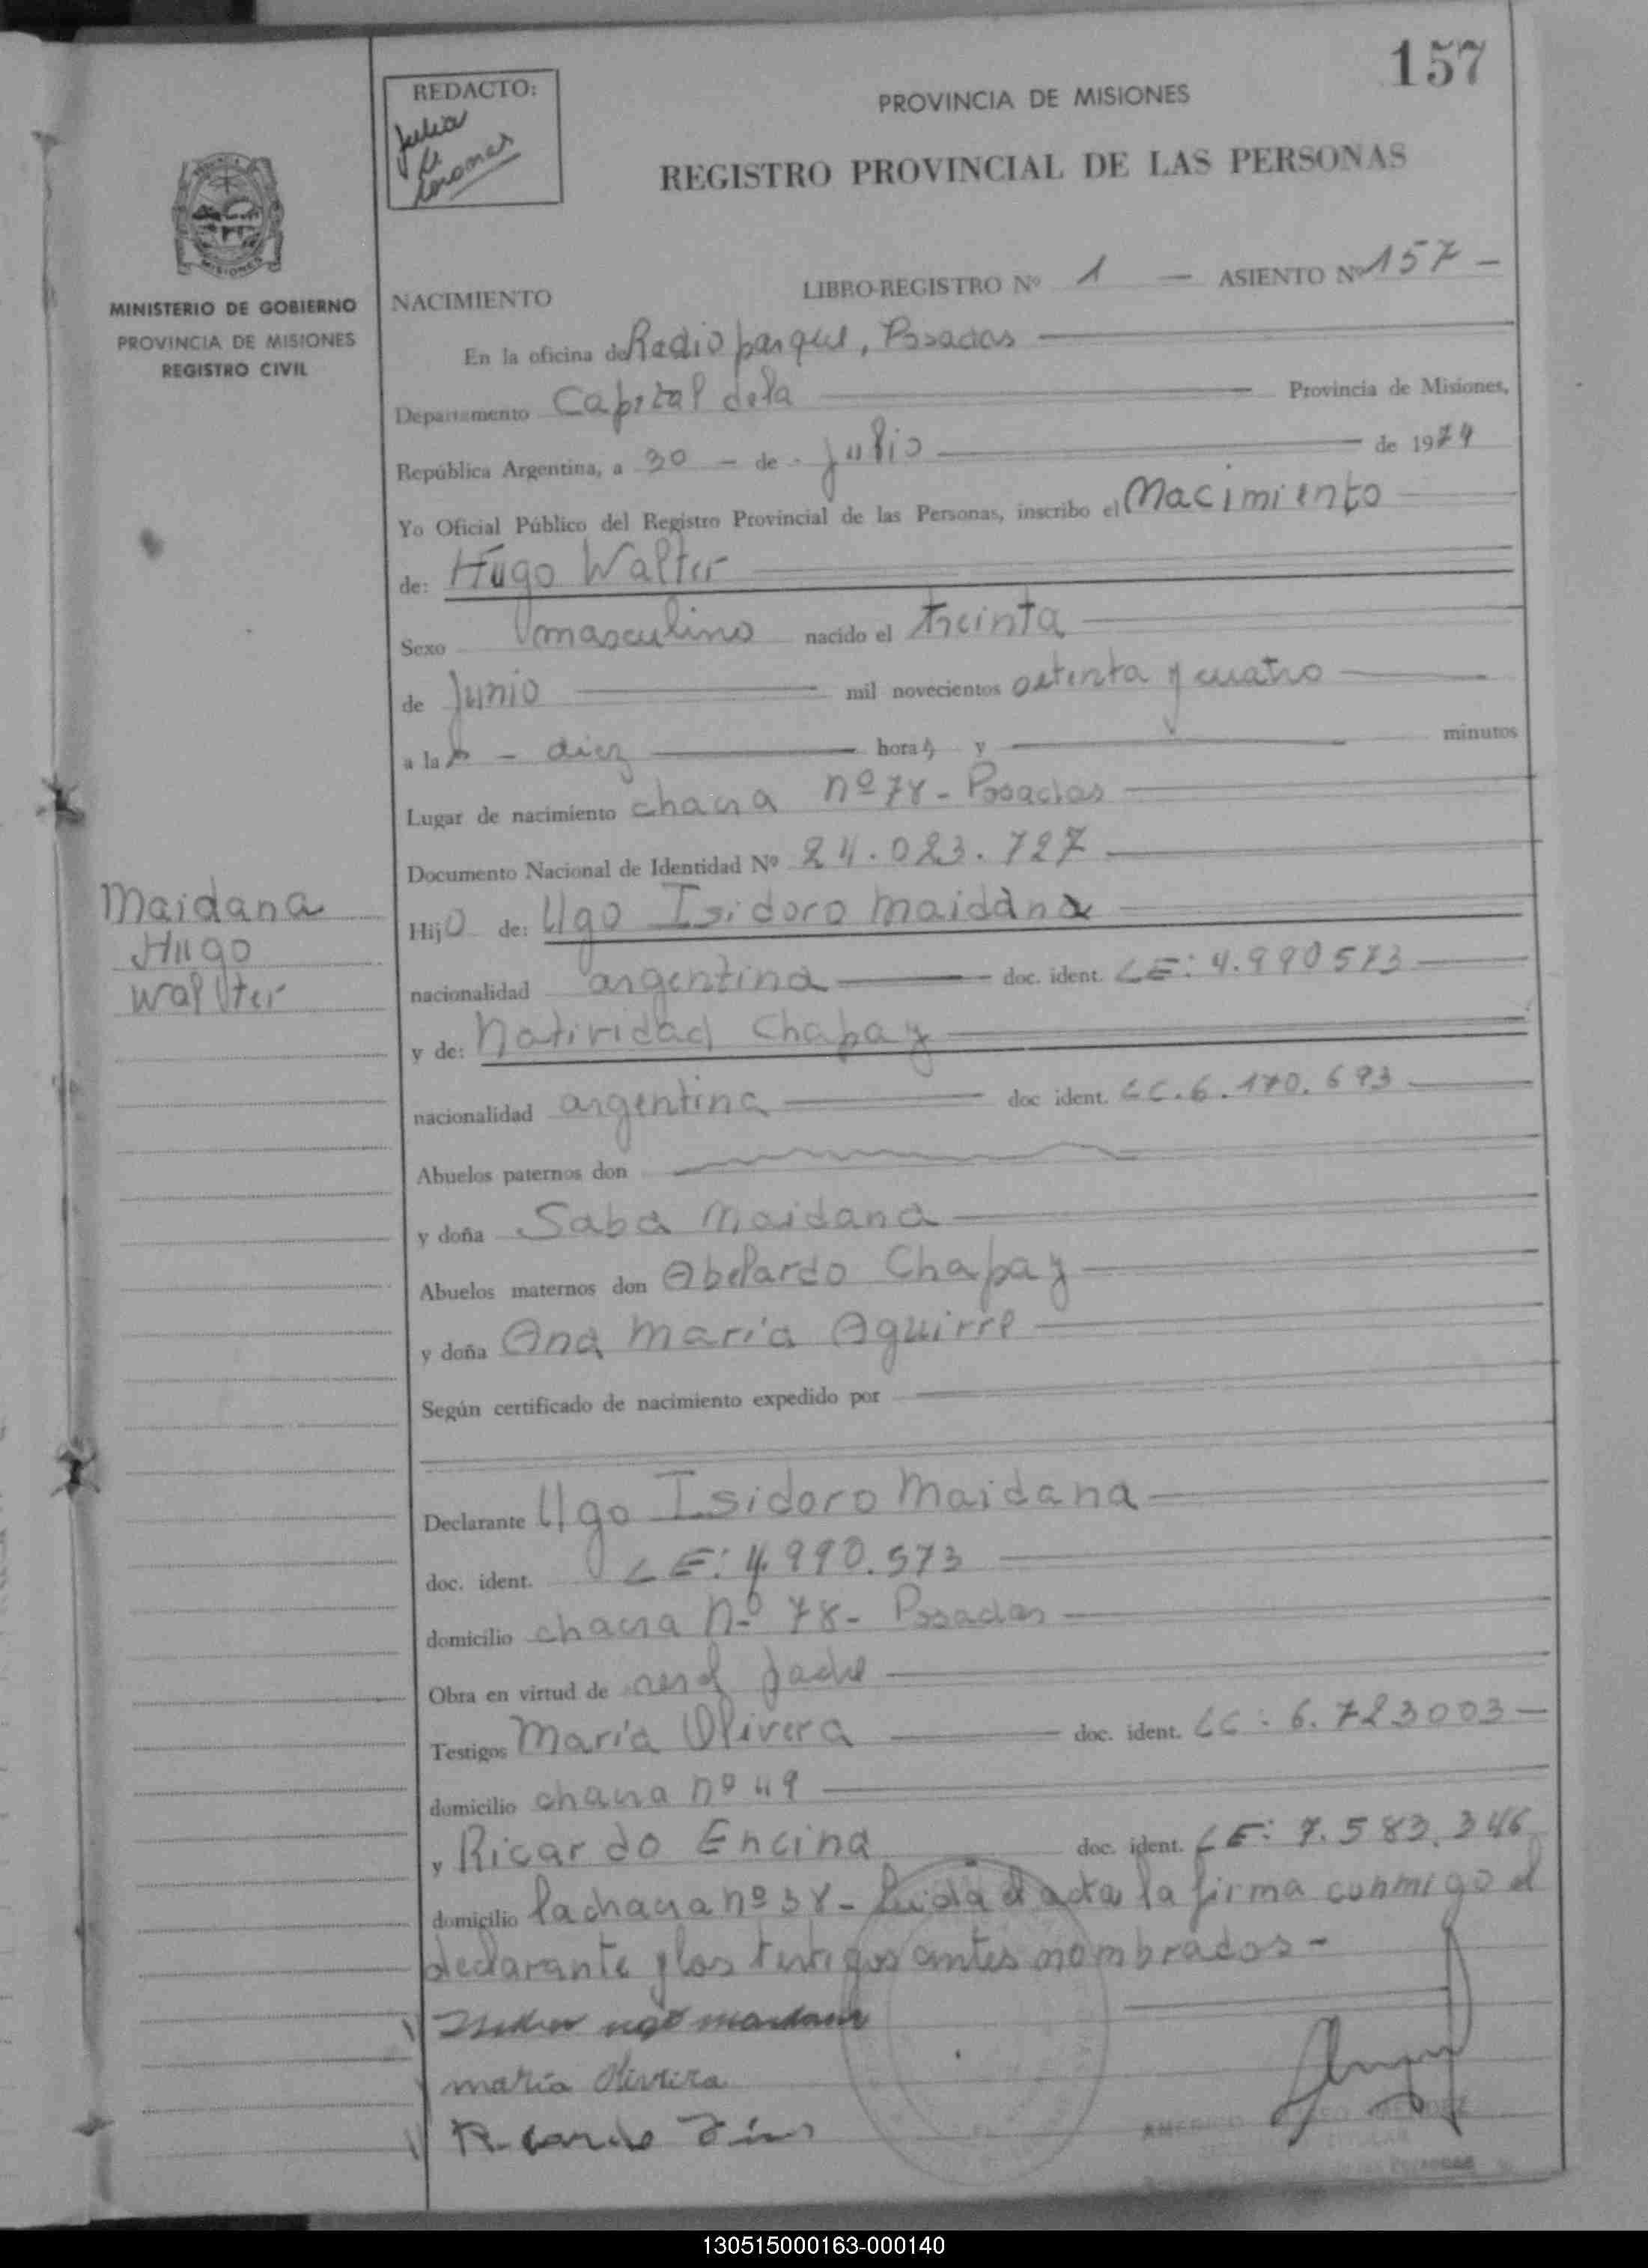 157
REDACTO:
Julia
PROVINCIA DE MISIONES
REGISTRO PROVINCIAL DE LAS PERSONAS
MISIONES
MINISTERIO DE GOBIERNO
PROVINCIA DE MISIONES
REGISTRO CIVIL
NACIMIENTO LIBRO-REGISTRO Nº 1 — ASIENTO Nº 157 -
En la oficina de Radio parque, Posadas
Departamento Capital de la Provincia de Misiones,
República Argentina, a 30 - de - Julio de 1974
Yo Oficial Público del Registro Provincial de las Personas, inscribo el Nacimiento
de: Hugo Walter
Sexo masculino nacido el treinta
de Junio mil novecientos setenta y cuatro
a las - diez horas y minutos
Lugar de nacimiento chacra nº 78 - Posadas
Documento Nacional de Identidad Nº 24.023.727
Maidana
Hugo
Walter
Hijo de: Ugo Isidoro Maidana
nacionalidad argentina doc. ident. LE: 4.990573
y de: Natividad Chapay
nacionalidad argentina doc ident. LC. 6.170.693
Abuelos paternos don
y doña Saba Maidana
Abuelos maternos don Abelardo Chapay
y doña Ana Maria Aguirre
Según certificado de nacimiento expedido por
Declarante Ugo Isidoro Maidana
doc. ident. LE: 4.990.573
domicilio chacra Nº 78 - Posadas
Obra en virtud de ser el padre
Testigos María Olivera doc. ident. LC: 6.723003 -
domicilio chacra nº 49
y Ricardo Encina doc. ident. LE: 7.583.346
domicilio la chacra nº 38 - Leida el acta la firma conmigo el
declarante y los testigos antes nombrados -
ugo maidana
maria Olivera
Ricardo
130515000163-000140